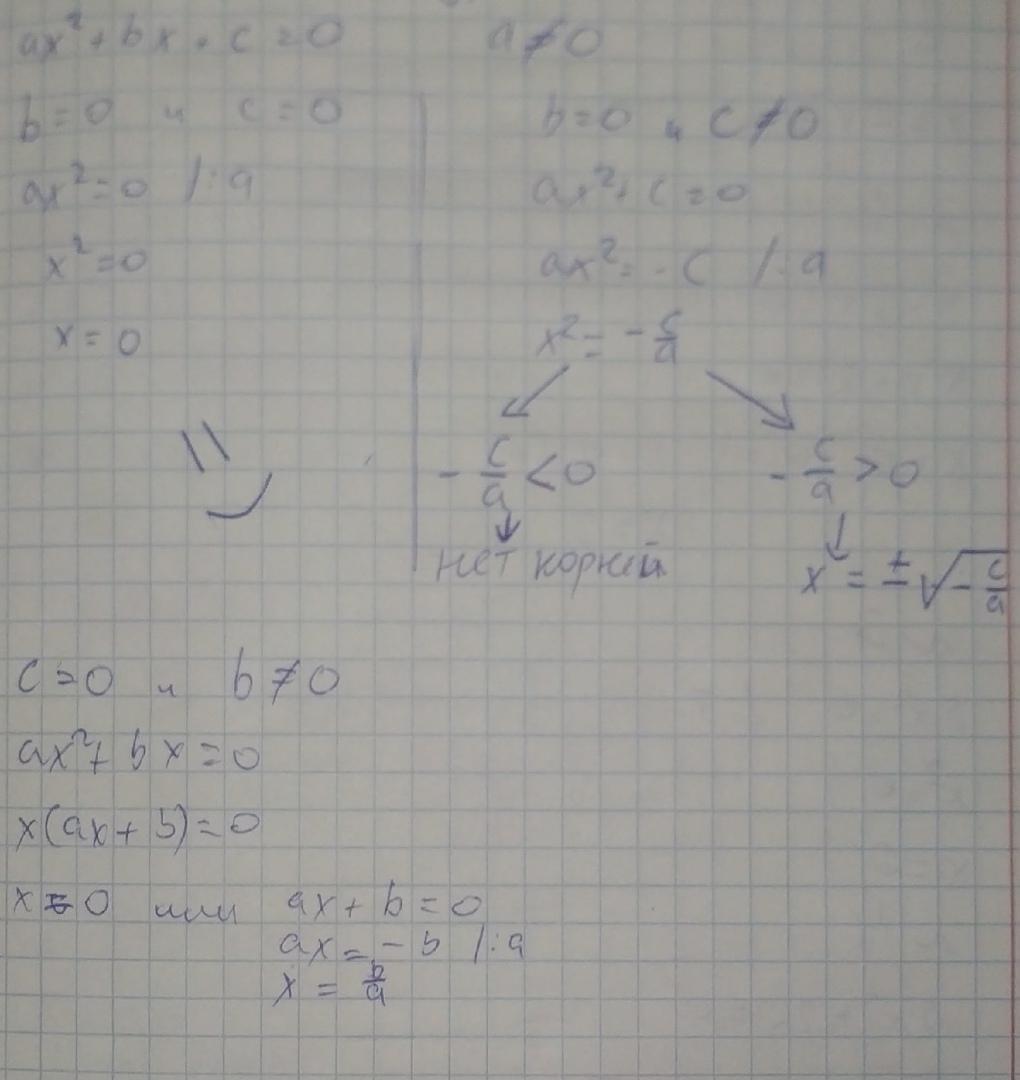 ax² + bx + c = 0 a ≠ 0
b = 0 и c = 0
ax² = 0 /:a
x² = 0
x = 0
b = 0 и c ≠ 0
ax² + c = 0
ax² = -c /:a
x² = -c/a
-c/a < 0 -c/a > 0
нет корней x = ±√(-c/a)
c = 0 и b ≠ 0
ax² + bx = 0
x(ax + b) = 0
x = 0 или ax + b = 0
ax = -b /:a
x = b/a